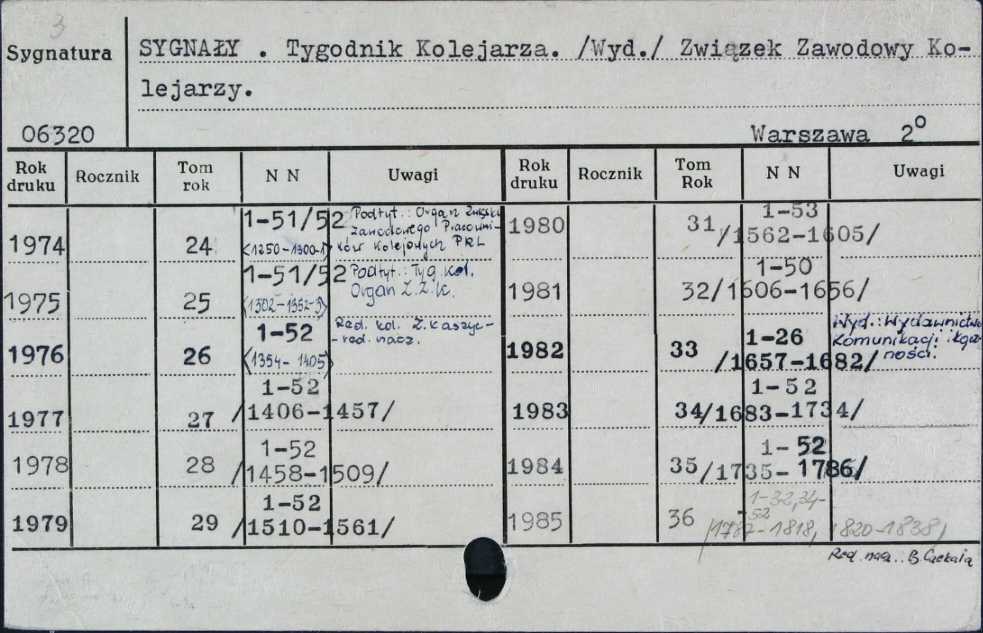 3
Sygnatura
06320
SYGNAŁY . Tygodnik Kolejarza. /Wyd./ Związek Zawodowy Ko-
lejarzy.
Warszawa 2º
Rok druku Rocznik Tom rok N N Uwagi
1974 24 1-51/52 <1250-1300-1> Podtyt.: Organ Związku
Zawodowego Pracowni-
ków Kolejowych PRL
1975 25 1-51/52 <1302-1352-3> Podtyt.: Tyg. Kol.
Organ Z.Z.K.
1976 26 1-52 <1354-1405> Red. kol. Z. Kaszyc-
-red. nacz.
1977 27 1-52 /1406-1457/
1978 28 1-52 /1458-1509/
1979 29 1-52 /1510-1561/
Rok druku Rocznik Tom Rok N N Uwagi
1980 31 1-53 /1562-1605/
1981 32 1-50 /1606-1656/
1982 33 1-26 /1657-1682/ Wyd.: Wydawnictwo
Komunikacji i Łącz-
ności.
1983 34 1-52 /1683-1734/
1984 35 1-52 /1735-1786/
1985 36 1-32,34-
52
/1787-1818, 1820-1838/
Red. nacz. B.